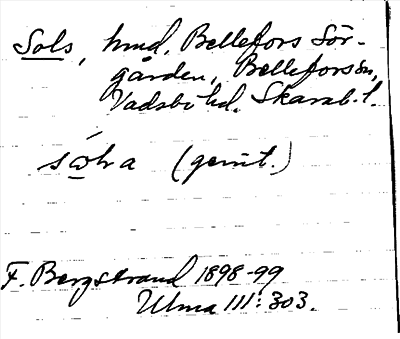 Sols, hmd. Bellefors Sör-
gården, Bellefors sn,
Vadsbo hd. Skarab. l.
(genit.)
F. Bergstrand 1898-99
Ulma 111:303.